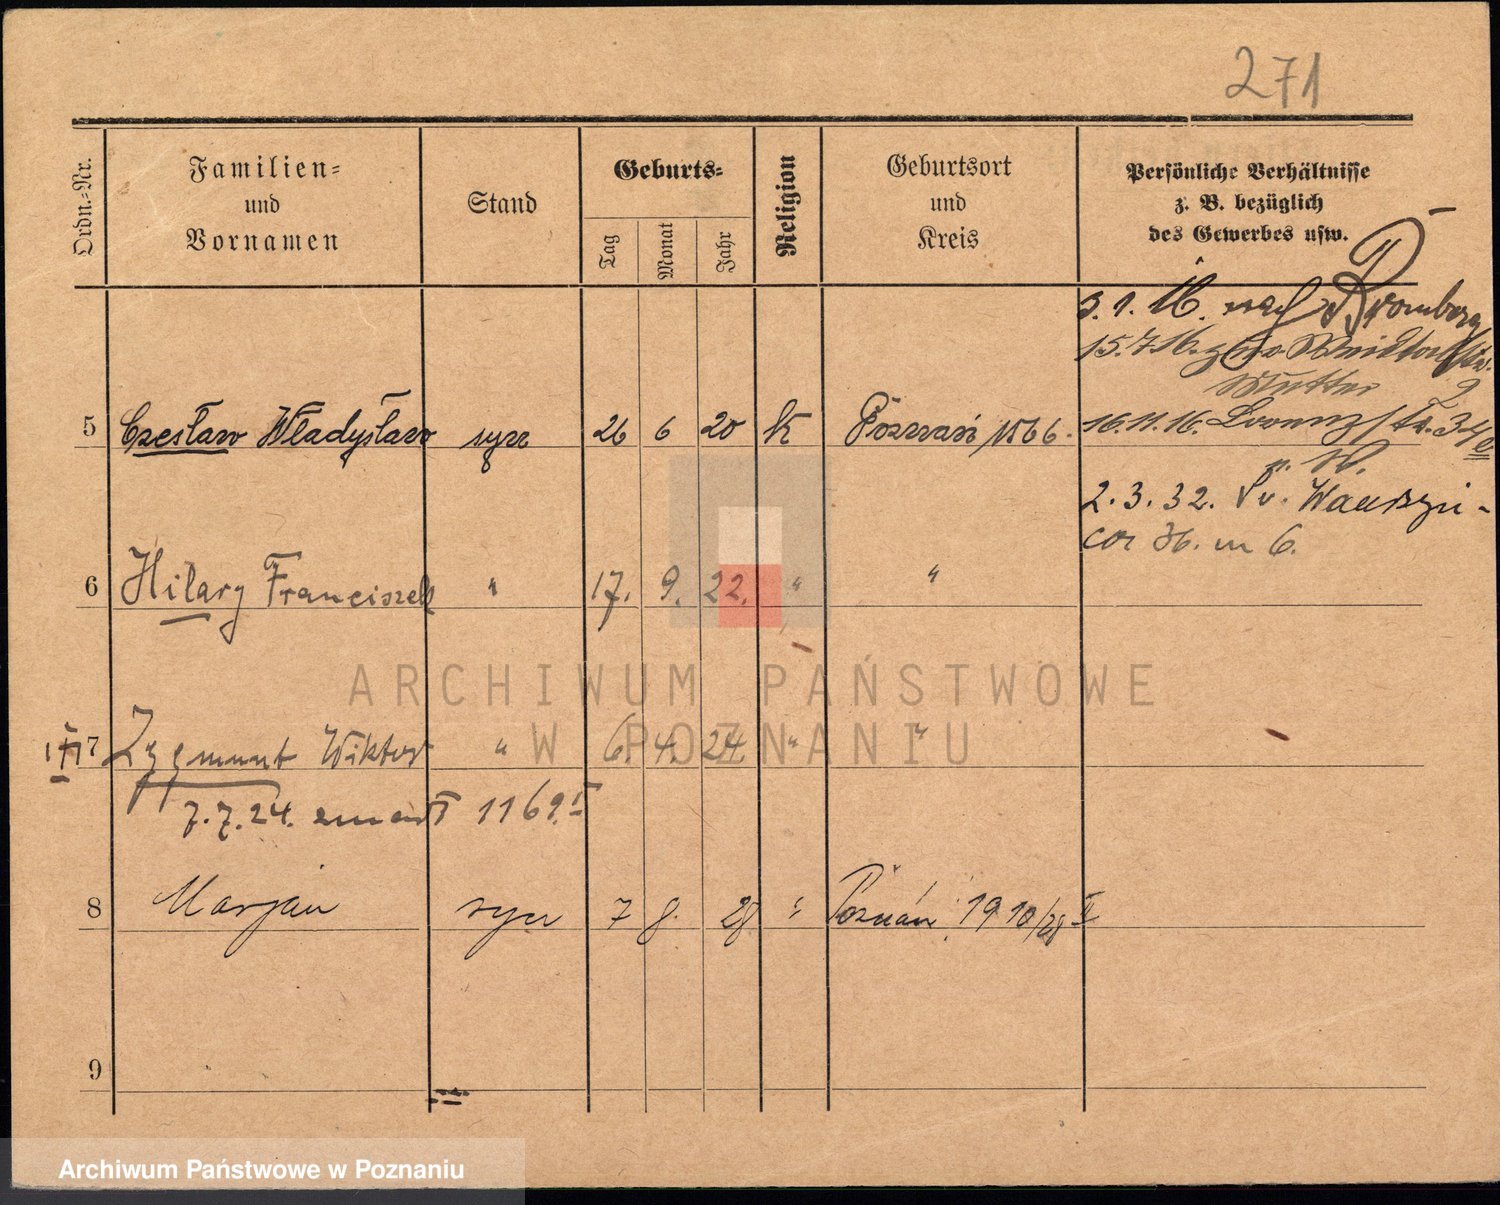 271
Ordn.-Nr.
Familien-
und
Vornamen
Stand
Geburts-
Tag
Monat
Jahr
Religion
Geburtsort
und
Kreis
Persönliche Verhältnisse
z. B. bezüglich
des Gewerbes usw.
3.1.16. nach Bromberg
15.7.16. z
Mutter
16.11.16. 34
2.3.32. Św. Wawrzyń-
ca 36. m 6.
5 Czesław Władysław syn 26 6 20 K Poznań 1566.
6 Hilary Franciszek " 17. 9. 22. " "
7 Zygmunt Wiktor " 6. 4. 24. " "
7.7.24. zmarł 1169. I
8 Marjan syn 7 8. 28 " Poznań 1910/28 II
9
ARCHIWUM PAŃSTWOWE
W POZNANIU
Archiwum Państwowe w Poznaniu